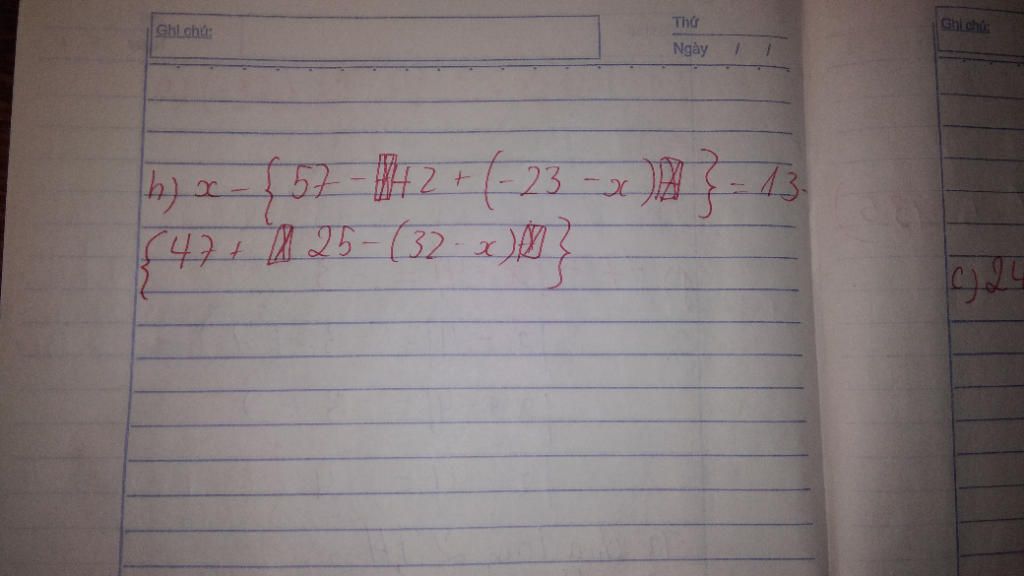 Ghi chú:
Thứ
Ngày / /
Ghi chú:
h) x - { 57 - 42 + (-23 - x) } = 13.
{ 47 + 25 - (32 - x) }
c) 24